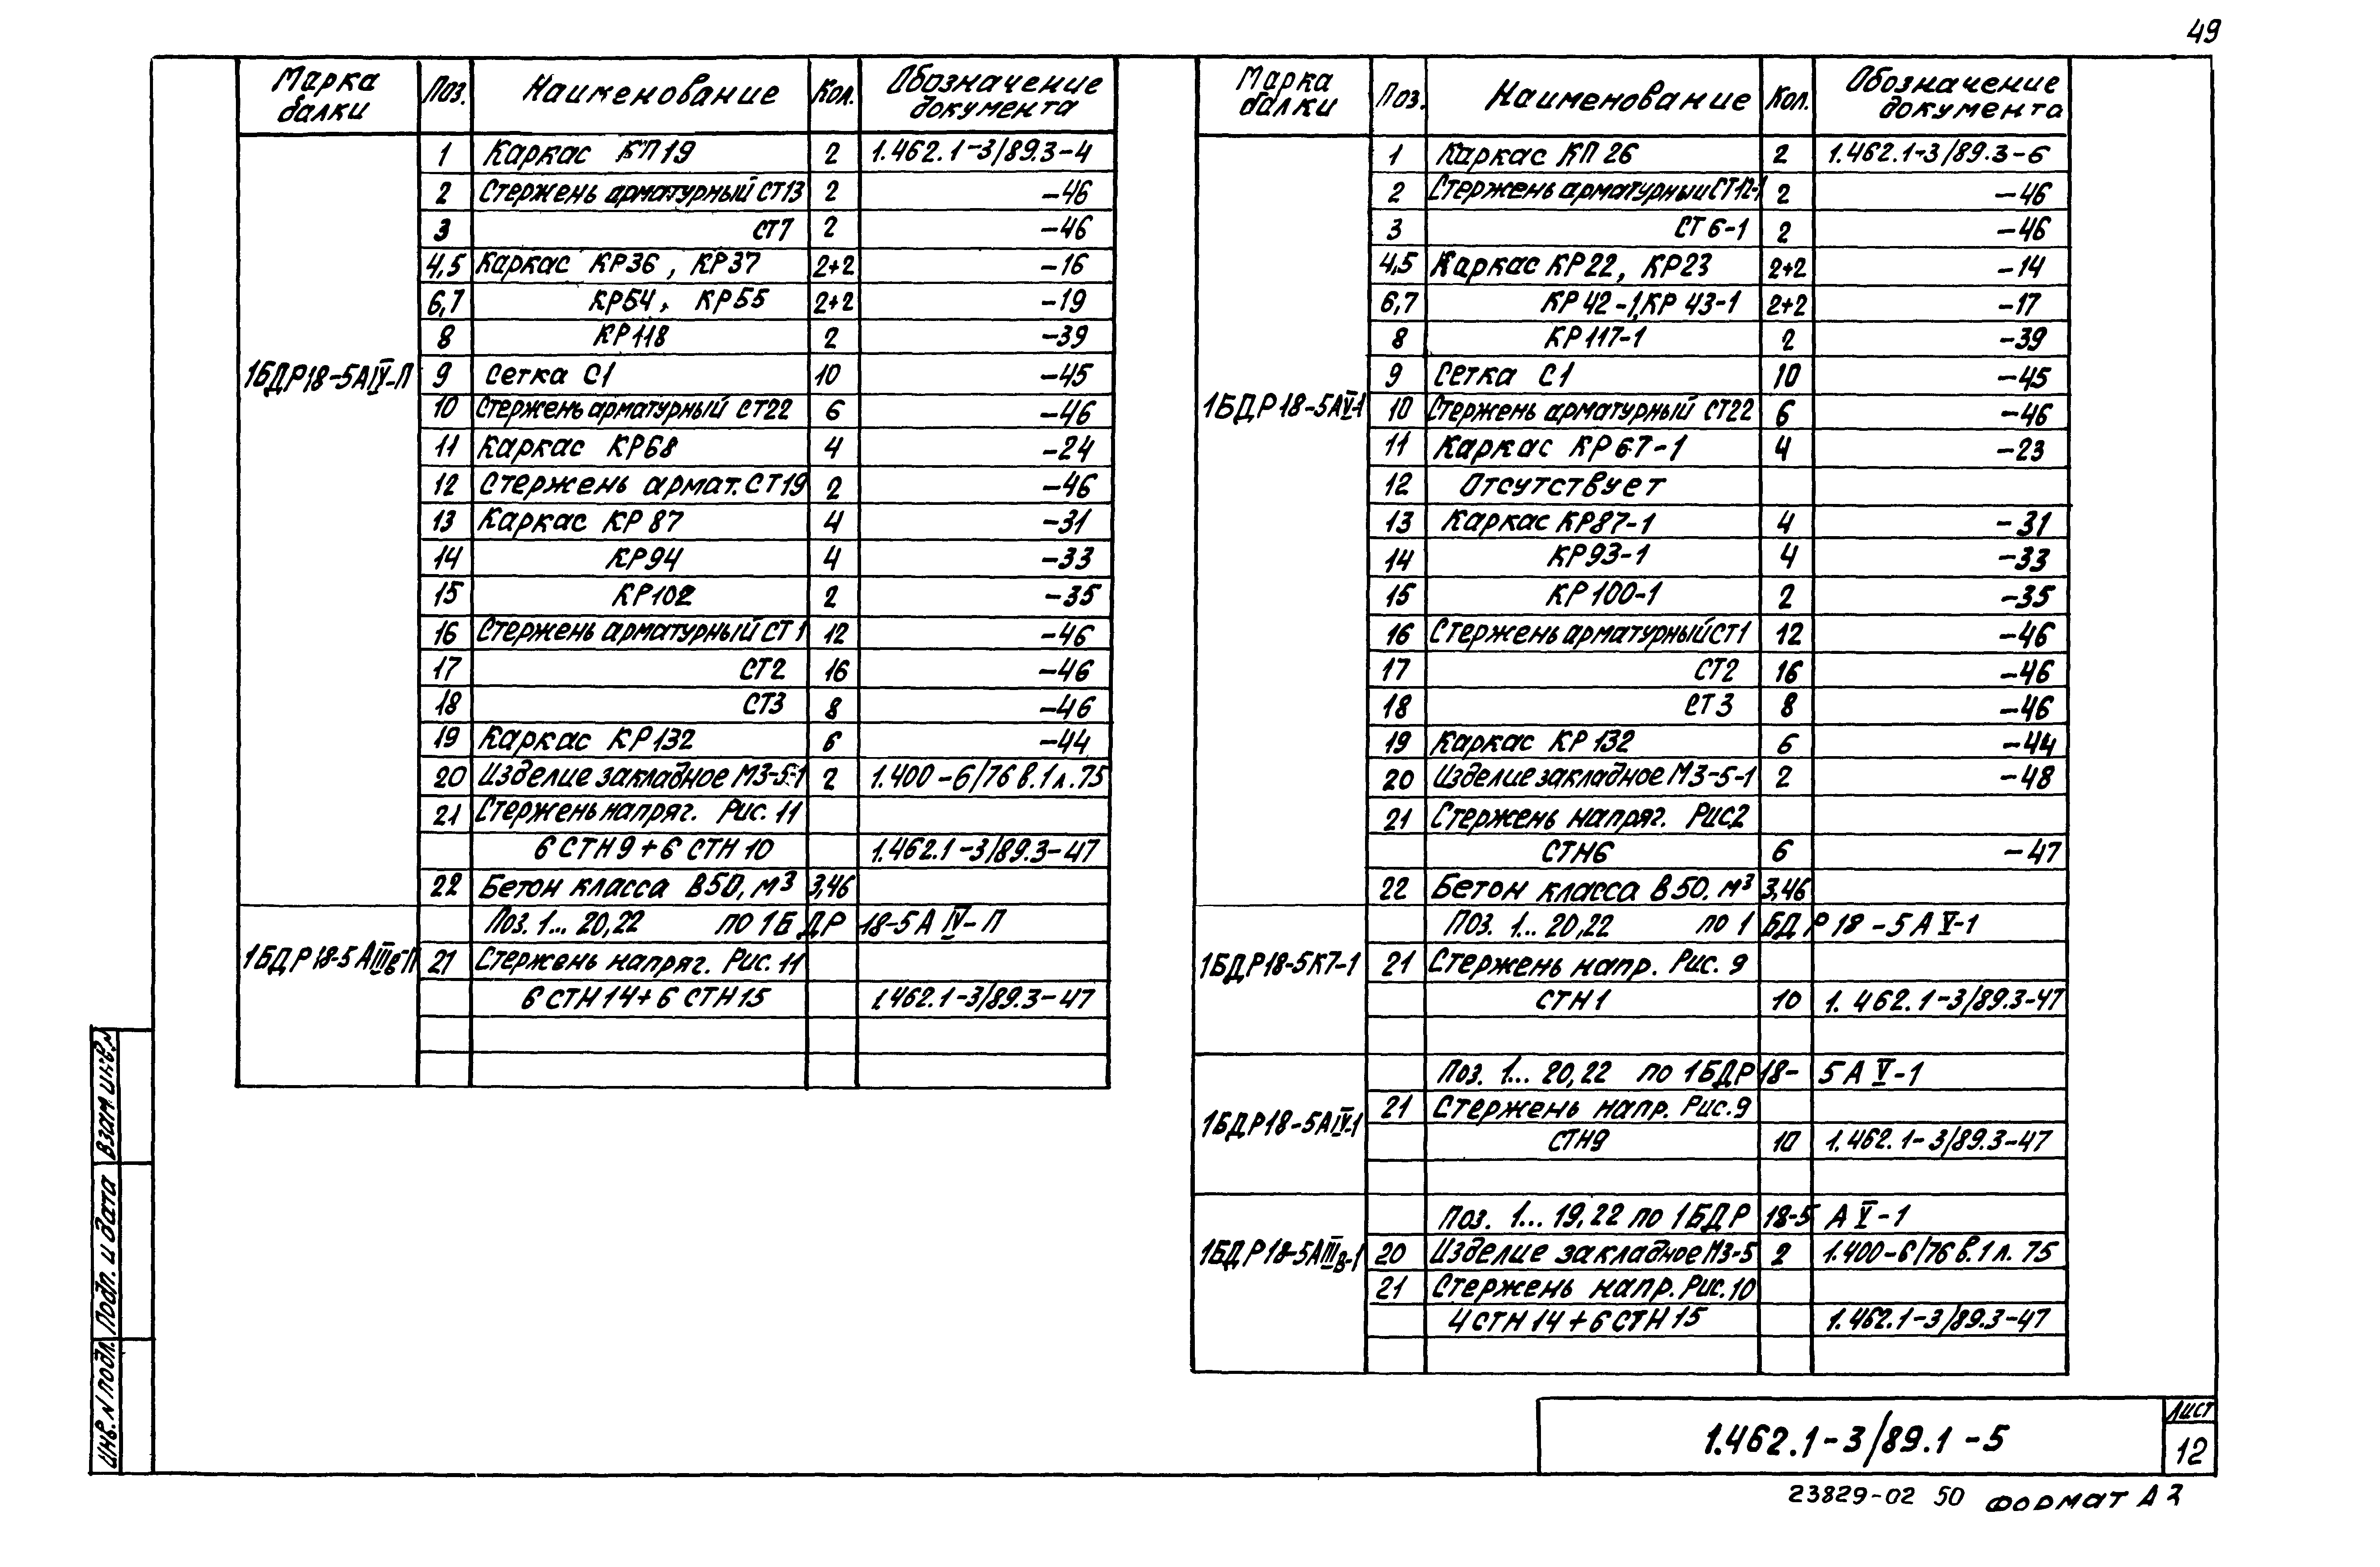 49
Марка балки Поз. Наименование Кол. Обозначение документа
1БДР18-5АIV-П
1 Каркас КП19 2 1.462.1-3/89.3-4
2 Стержень арматурный СТ13 2 -46
3 СТ7 2 -46
4,5 Каркас КР36, КР37 2+2 -16
6,7 КР54, КР55 2+2 -19
8 КР118 2 -39
9 Сетка С1 10 -45
10 Стержень арматурный СТ22 6 -46
11 Каркас КР68 4 -24
12 Стержень армат. СТ19 2 -46
13 Каркас КР87 4 -31
14 КР94 4 -33
15 КР102 2 -35
16 Стержень арматурный СТ1 12 -46
17 СТ2 16 -46
18 СТ3 8 -46
19 Каркас КР132 6 -44
20 Изделие закладное МЗ-5-1 2 1.400-6/76 в.1 л.75
21 Стержень напряг. Рис. 11
6 СТН9+6 СТН10 1.462.1-3/89.3-47
22 Бетон класса В50, м3 3,46
1БДР18-5АIIIв-П
Поз. 1...20,22 по 1БДР 18-5А IV-П
21 Стержень напряг. Рис. 11
6 СТН14+6 СТН15 1.462.1-3/89.3-47
Марка балки Поз. Наименование Кол. Обозначение документа
1БДР18-5АV-1
1 Каркас КП26 2 1.462.1-3/89.3-6
2 Стержень арматурный СТ12-1 2 -46
3 СТ6-1 2 -46
4,5 Каркас КР22, КР23 2+2 -14
6,7 КР42-1, КР43-1 2+2 -17
8 КР117-1 2 -39
9 Сетка С1 10 -45
10 Стержень арматурный СТ22 6 -46
11 Каркас КР67-1 4 -23
12 Отсутствует
13 Каркас КР87-1 4 -31
14 КР93-1 4 -33
15 КР100-1 2 -35
16 Стержень арматурный СТ1 12 -46
17 СТ2 16 -46
18 СТ3 8 -46
19 Каркас КР132 6 -44
20 Изделие закладное МЗ-5-1 2 -48
21 Стержень напряг. Рис2
СТН6 6 -47
22 Бетон класса В50, м3 3,46
1БДР18-5К7-1
Поз. 1...20,22 по 1БДР18-5АV-1
21 Стержень напр. Рис. 9
СТН1 10 1.462.1-3/89.3-47
1БДР18-5АIV-1
Поз. 1...20,22 по 1БДР18-5АV-1
21 Стержень напр. Рис.9
СТН9 10 1.462.1-3/89.3-47
1БДР18-5АIIIв-1
Поз. 1...19,22 по 1БДР 18-5АV-1
20 Изделие закладное МЗ-5 2 1.400-6/76 в.1 л. 75
21 Стержень напр. Рис.10
4СТН14+6СТН15 1.462.1-3/89.3-47
Инв. N подл. Подп. и дата Взам. инв. N
1.462.1-3/89.1-5
Лист
12
23829-02 50 Формат А3